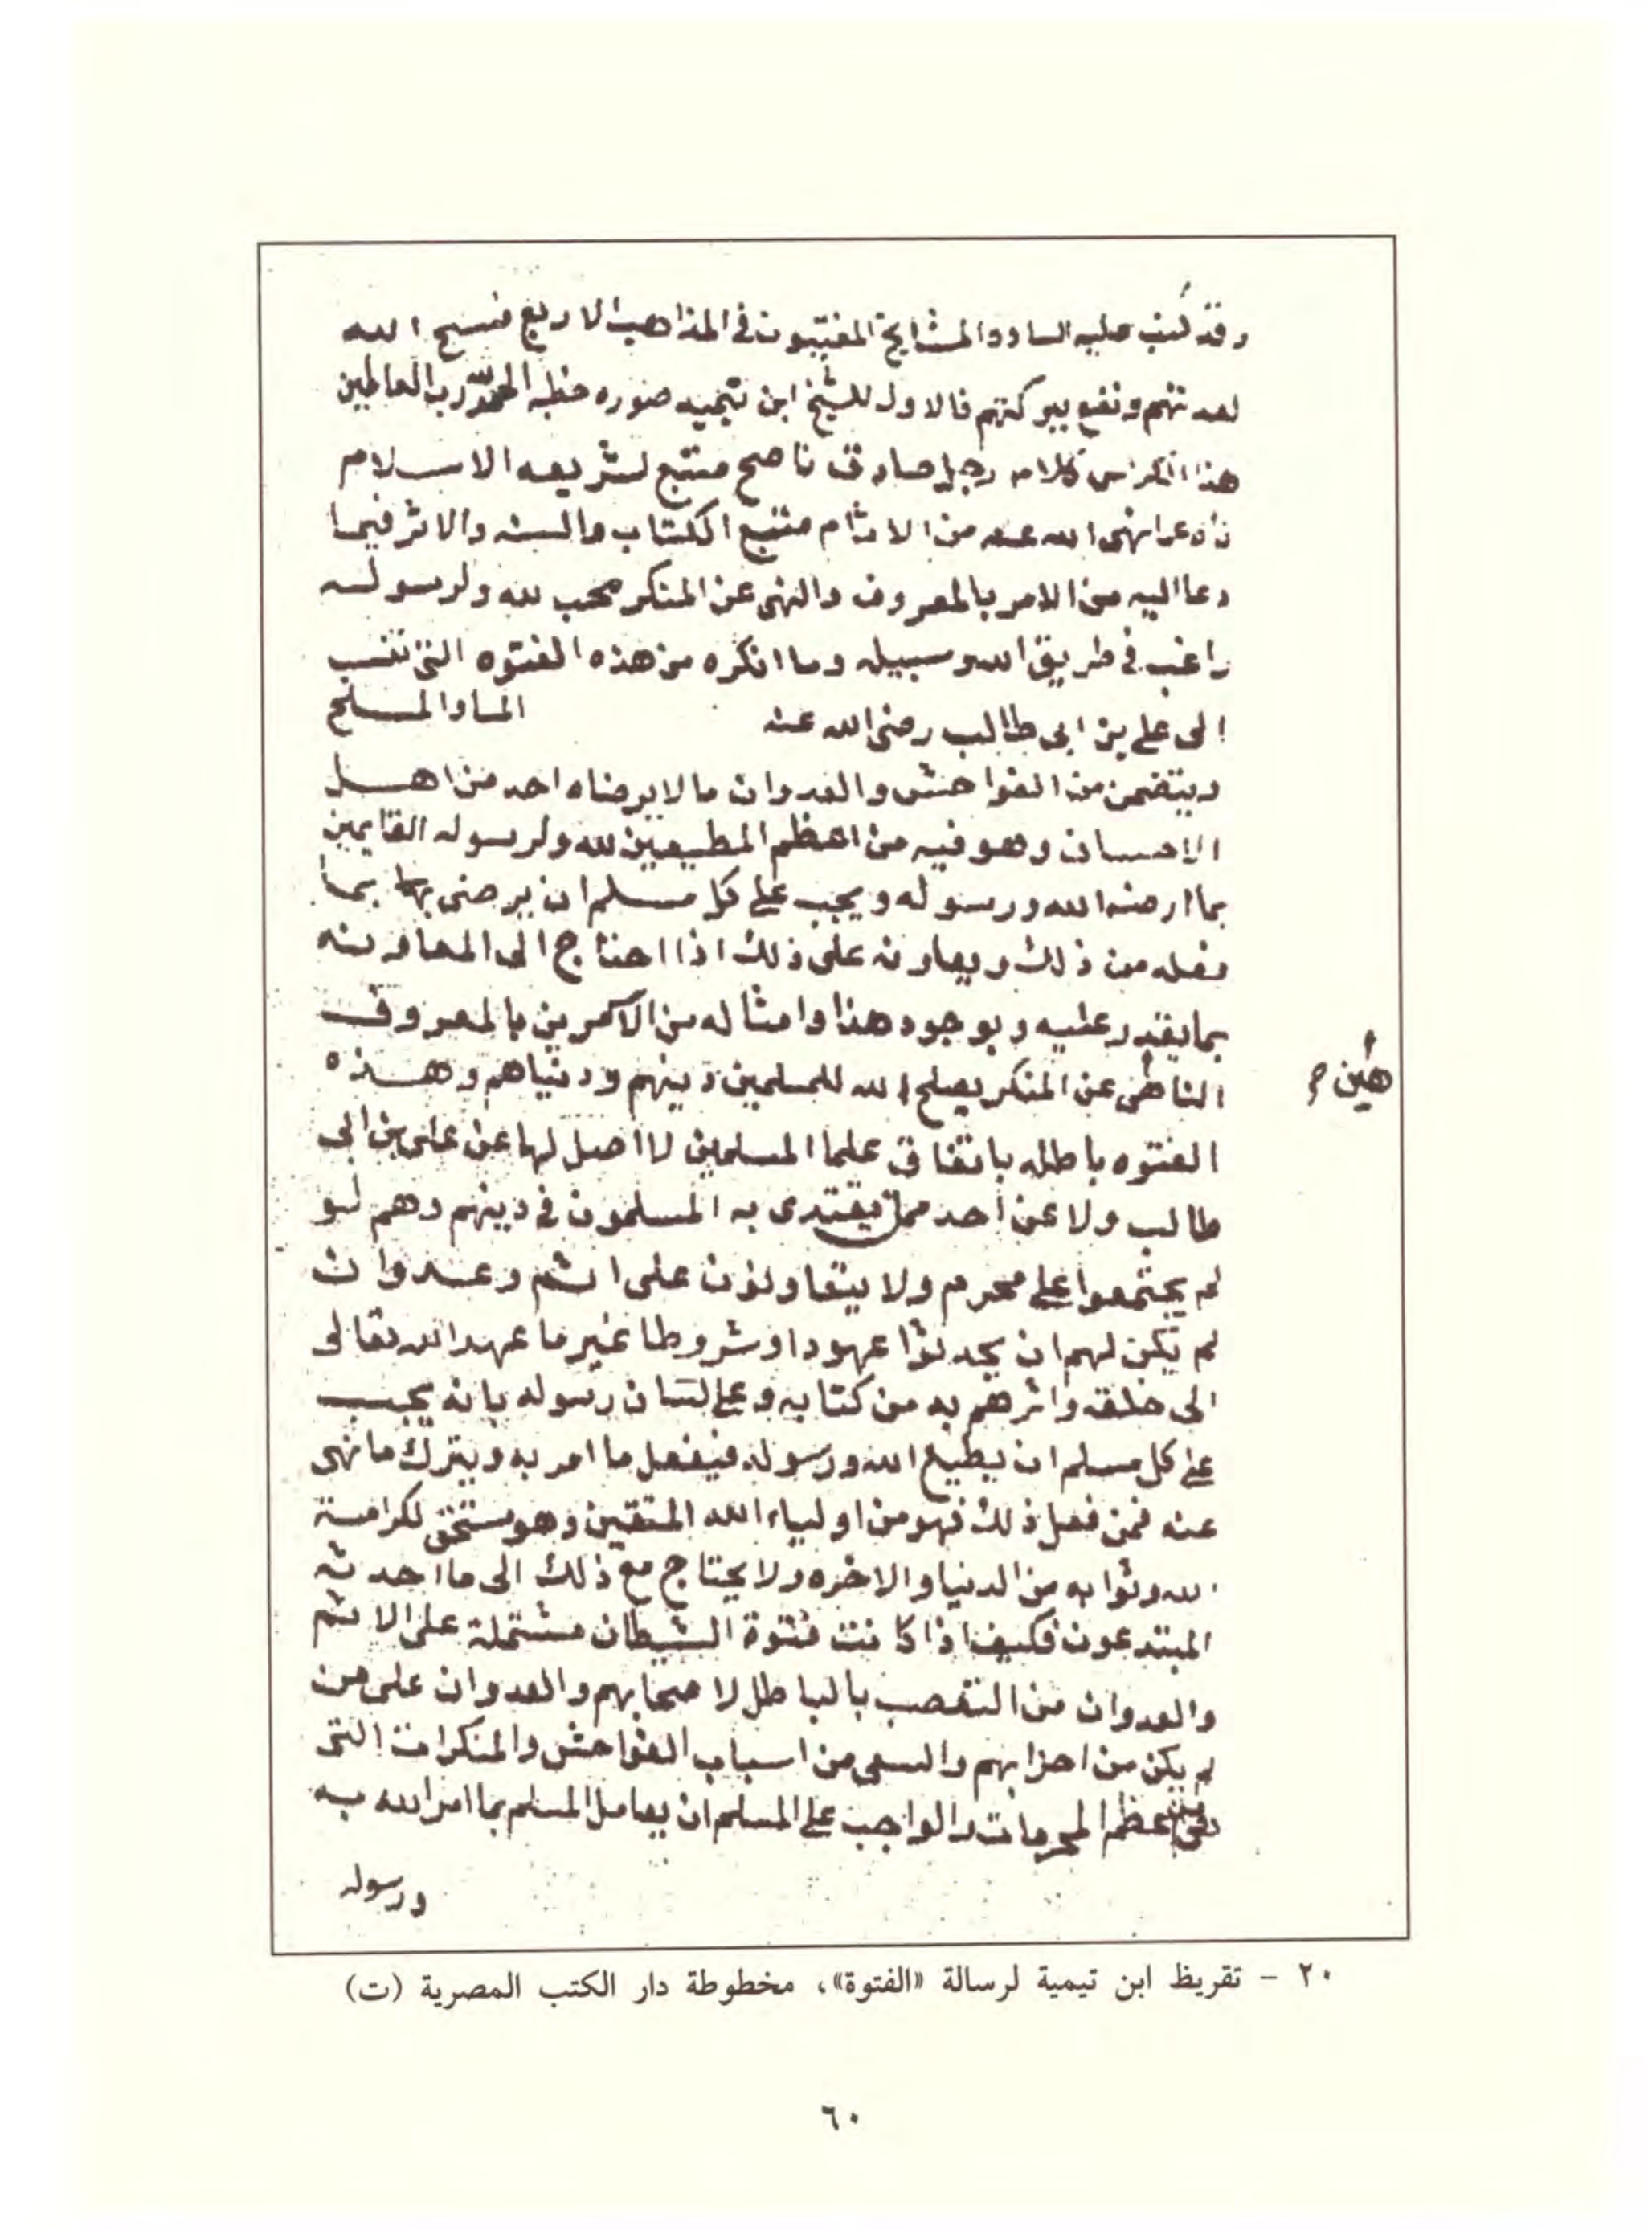 وقد كتب عليه الساده المشايخ المفتيون في المذاهب الاربع فسح الله
لمدتهم ونفع ببركتهم فالاول للشيخ ابن تيميه صوره خطه الحمد لله رب العالمين
هذا كلام رجل صادق ناصح متبع لشريعه الاسلام
ناه عما نهى الله عنه من الاثام متبع الكتاب والسنه والاثر فيما
دعا اليه من الامر بالمعروف والنهى عن المنكر محب لله ولرسوله
راغب في طريق الله وسبيله وما انكره من هذه الفتوه التي تنسب
الى علي بن ابى طالب رضى الله عنه الما والملح
ويتضمن من الفواحش والعدوان ما لا يرضاه احد من اهل
الاحسان وهو فيه من اعظم المطيعين لله ولرسوله القايمين
بما ارضى الله ورسوله ويجب على كل مسلم ان يرضى بما
فعله من ذلك ويعاونه على ذلك اذا احتاج الى المعاونه
بما يقدر عليه وبوجود هذا وامثاله من الآمرين بالمعروف
الناهى عن المنكر يصلح الله للمسلمين دينهم ودنياهم وهذه
هين
الفتوه باطله باتفاق علما المسلمين لا اصل لها عن على بن ابى
طالب ولا عن احد ممن يقتدى به المسلمون في دينهم وهم لو
لم يجتمعوا على محرم ولا يتعاونون على اثم وعدوان
لم يكن لهم ان يحدثوا عهودا وشروطا غير ما عهد الله تعالى
الى خلقه وامرهم به من كتابه وعلى لسان رسوله بانه يجب
على كل مسلم ان يطيع الله ورسوله فيفعل ما امر به ويترك ما نهى
عنه فمن فعل ذلك فهو من اولياء الله المتقين وهو مستحق لكرامة
الله وثوابه من الدنيا والاخره ولا يحتاج مع ذلك الى ما احدثه
المبتدعون فكيف اذا كانت فتوة الشيطان مشتملة على الاثم
والعدوان من التعصب بالباطل لاصحابهم والعدوان على من
لم يكن من احزابهم والسعى من اسباب الفواحش والمنكرات التى
هي من اعظم المحرمات والواجب على المسلم ان يعامل المسلم بما امر الله به
ورسوله
٢٠ - تقريظ ابن تيمية لرسالة «الفتوة»، مخطوطة دار الكتب المصرية (ت)
٦٠